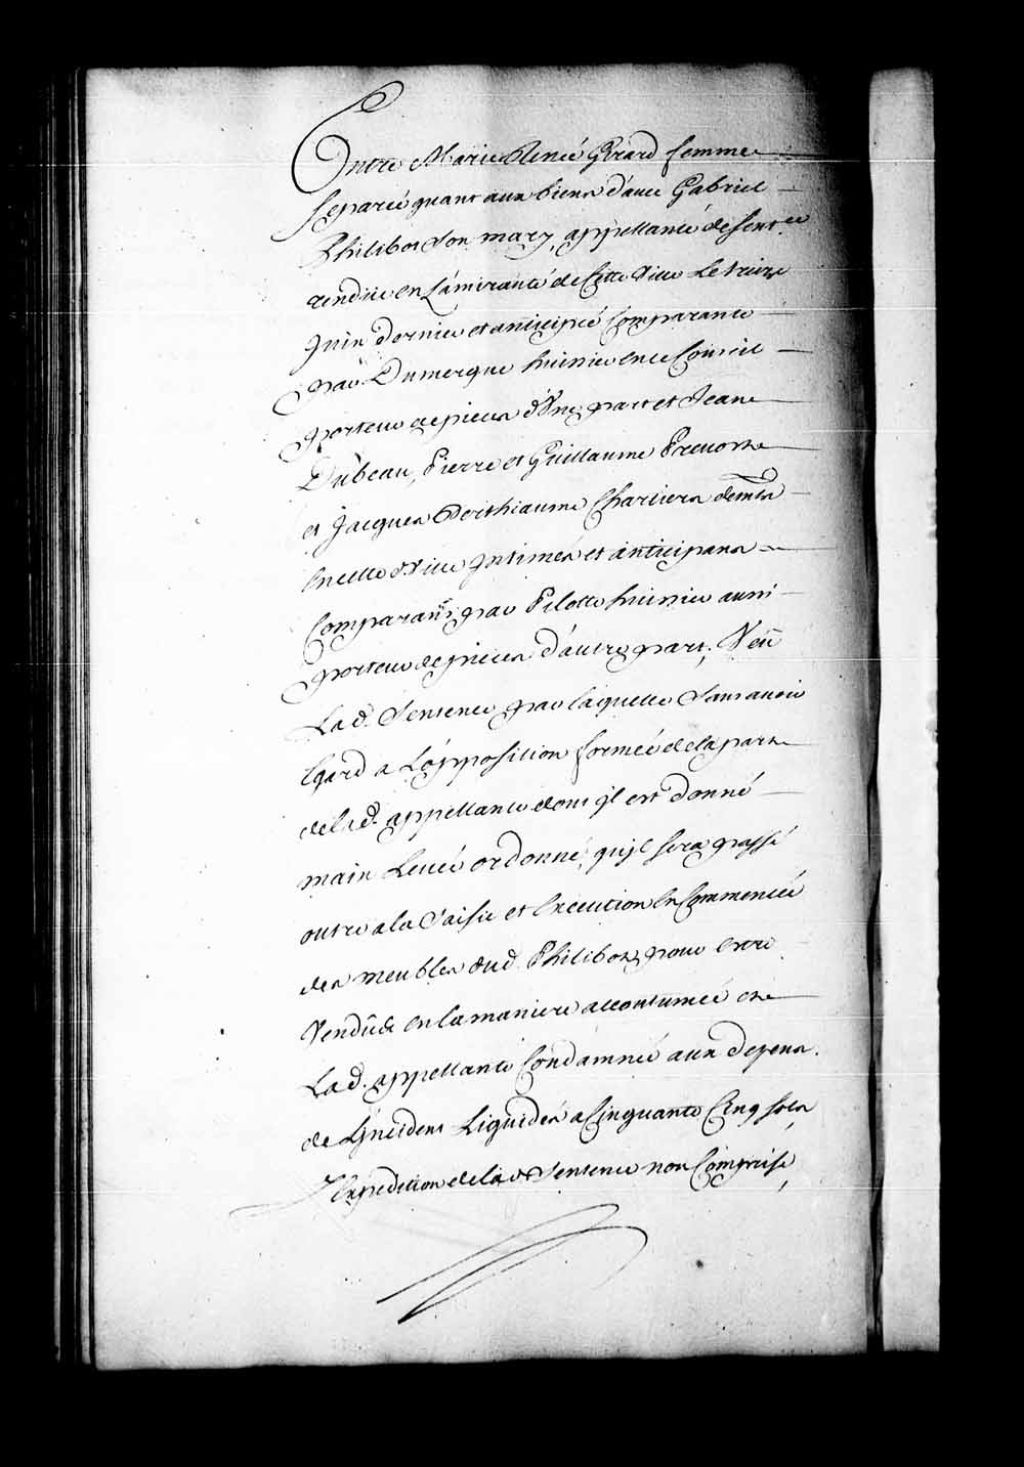 Entre Marie Renée Girard femme
separeé quant aux biens d'avec Gabriel
Philibot son mary, appellante de sentce
rendüe en L'amirauté de Cette Ville Le treize
Juin dernier et anticipeé Comparante
par Dumergue huissier en ce Conseil
porteur de pieces d'Une part et Jean
Dubeau, Pierre et Guillaume Prevost
et Jacques Berthiaume Chartiers demts
En cette Ville Intimés et anticipans
Comparans par Pilotte huissier aussi
porteur de pieces d'autre part; Veü
Lad. Sentence par laquelle Sans avoir
Egard a L'opposition formeé de la part
de lad. appellante dont jl est donné
main Leveé ordonné, qu'jl sera passé
outre a la Saisie et Execution Encommenceé
des meubles dud. Philibot, pour estre
Vendus En la maniere accoutumeé et
Lad. appellante Condamneé aux depens
de L'jncident Liquidés a Cinquante Cinq sols
L'Expedition de lad. Sentence non Comprise,